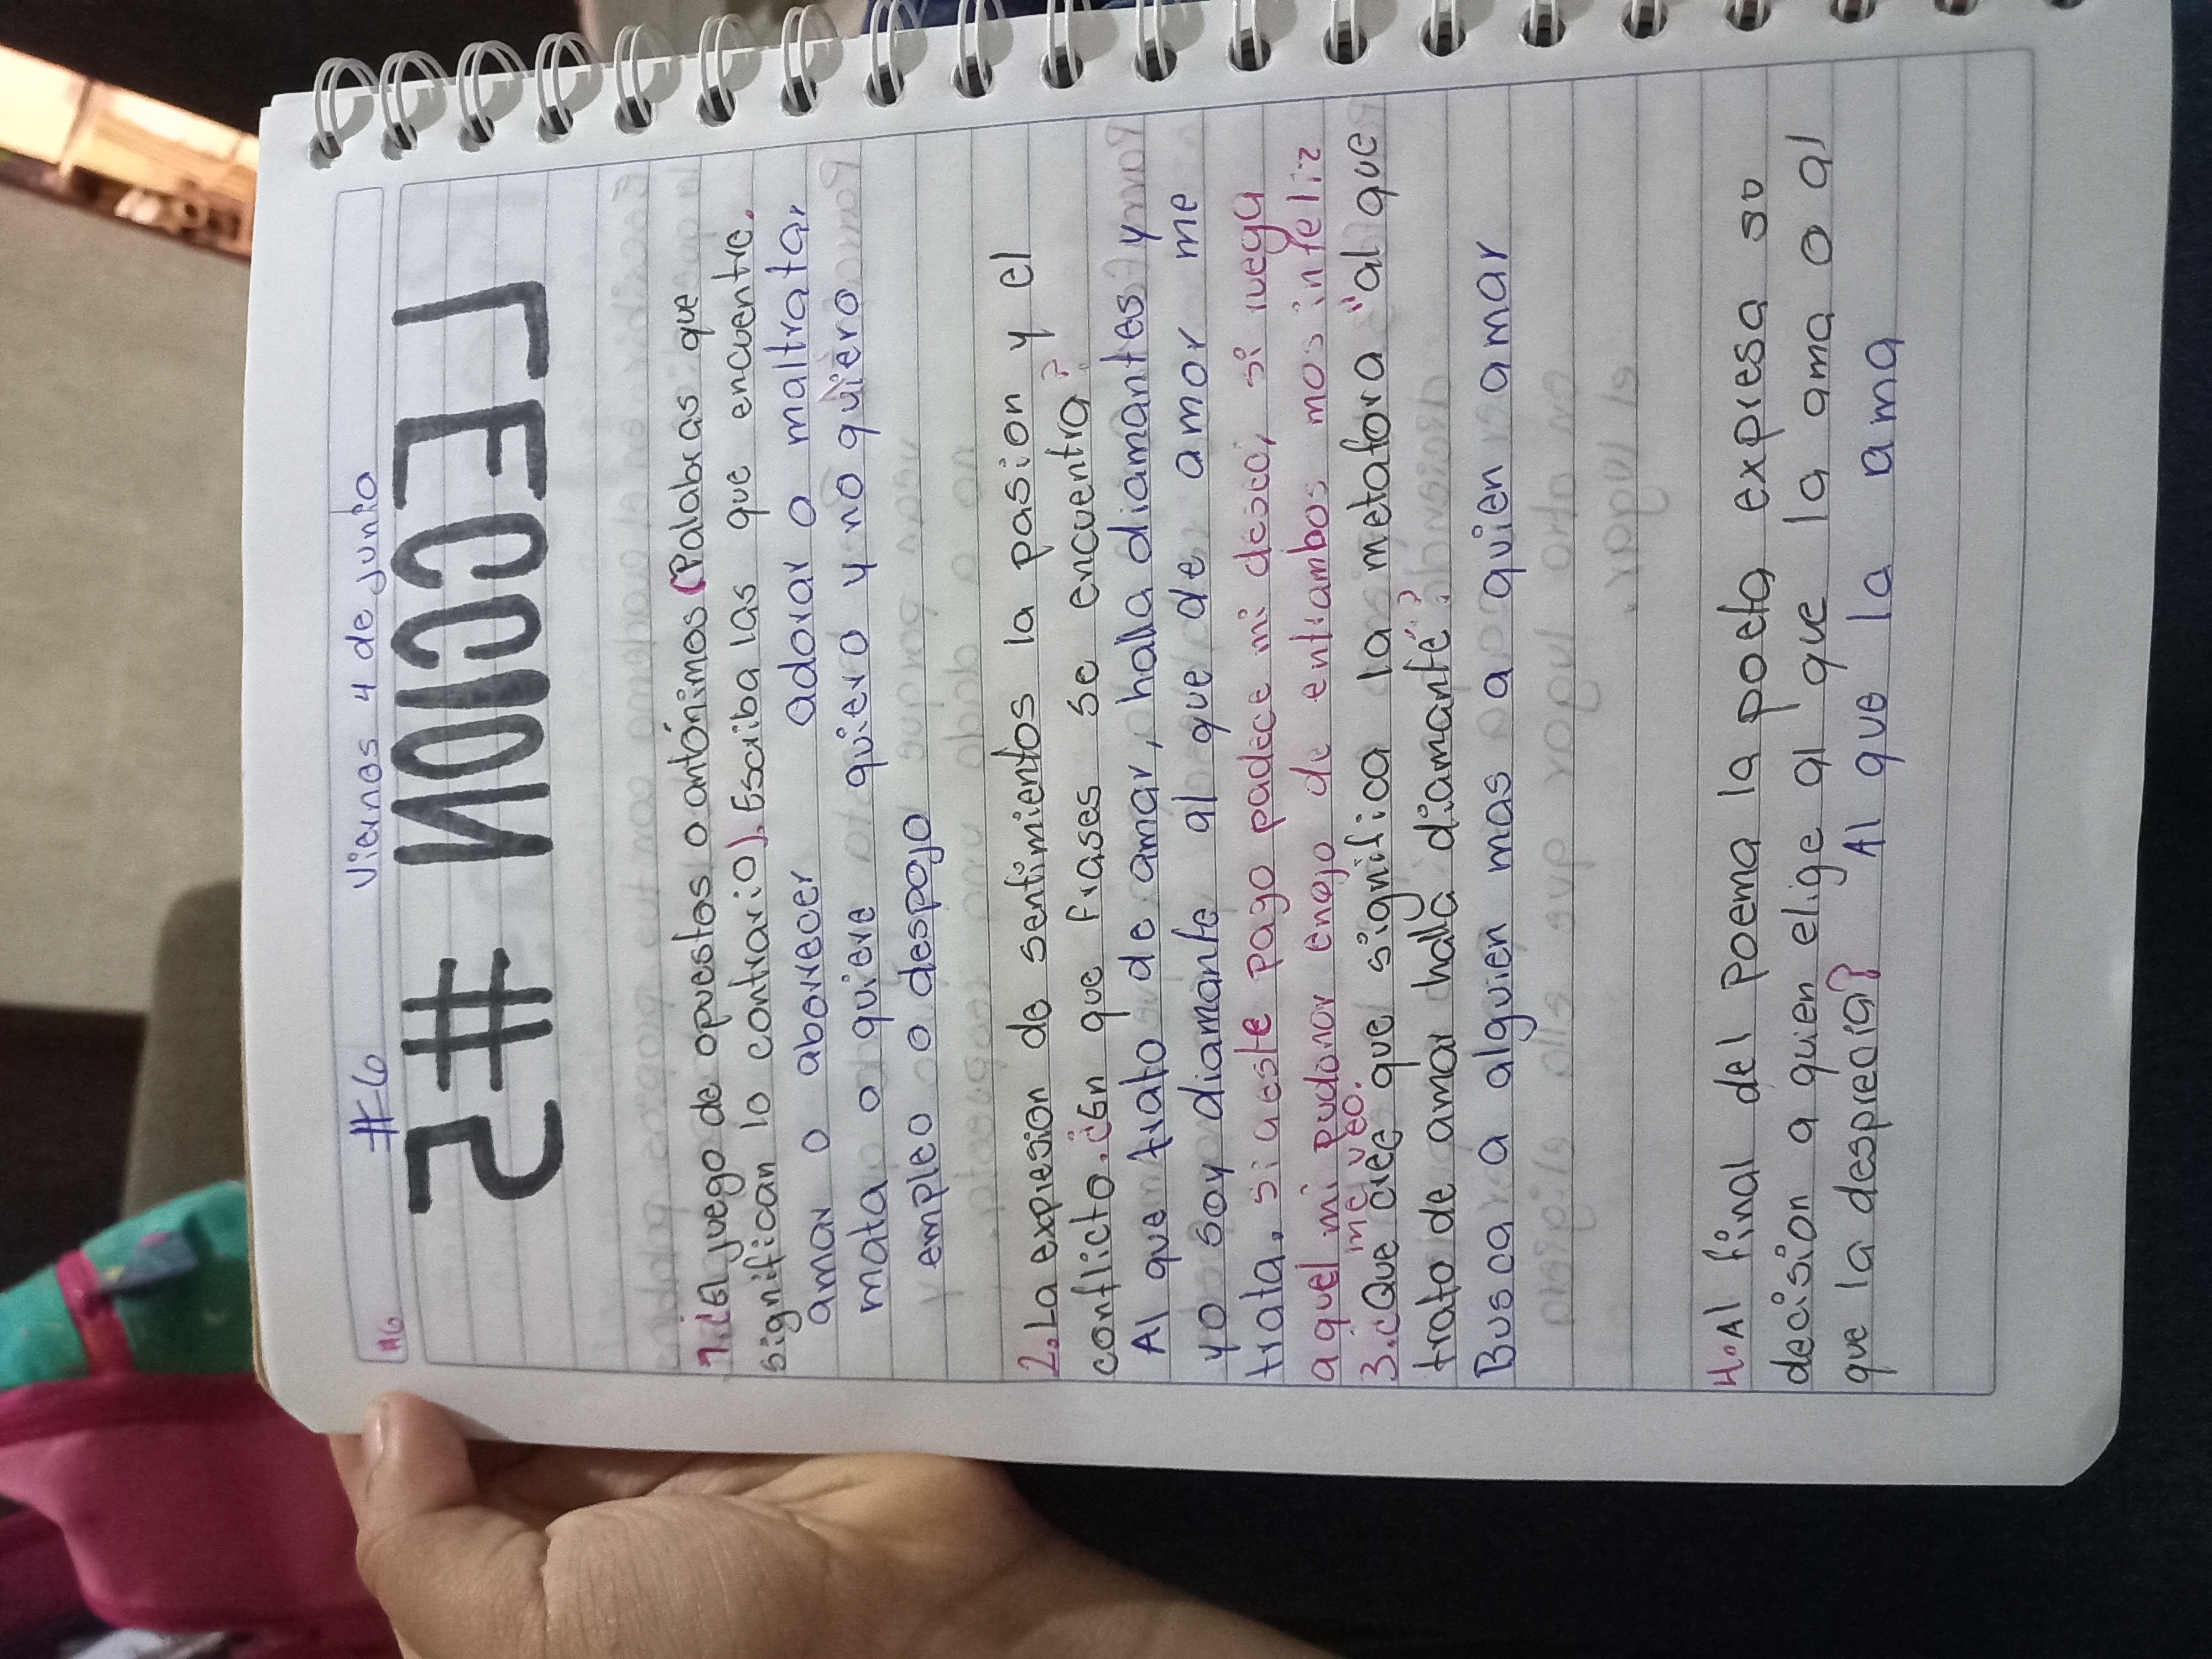 #6 Viernes 4 de junio
#6
LECCION #2
1. El juego de opuestos o antónimos (Palabras que
significan lo contrario). Escriba las que encuentre.
amar o aborrecer adorar o maltratar
mata o quiere quiero y no quiero
empleo o despojo
2. La expresion de sentimientos la pasion y el
conflicto. ¿En que frases se encuentra?
Al que trato de amar, halla diamantes y
yo soy diamante al que de amor me
trata, si a este pago padece mi deseo, si ruega
a quel mi pudonor enojo de entrambos mos infeliz
me veo.
3. ¿Que cree que significa la metafora "al que
trato de amor halla diamante"?
Busca a alguien mas a quien amar
4. Al final del poema la poeta expresa su
decision a quien elige al que la ama o al
que la desprecia? Al que la ama